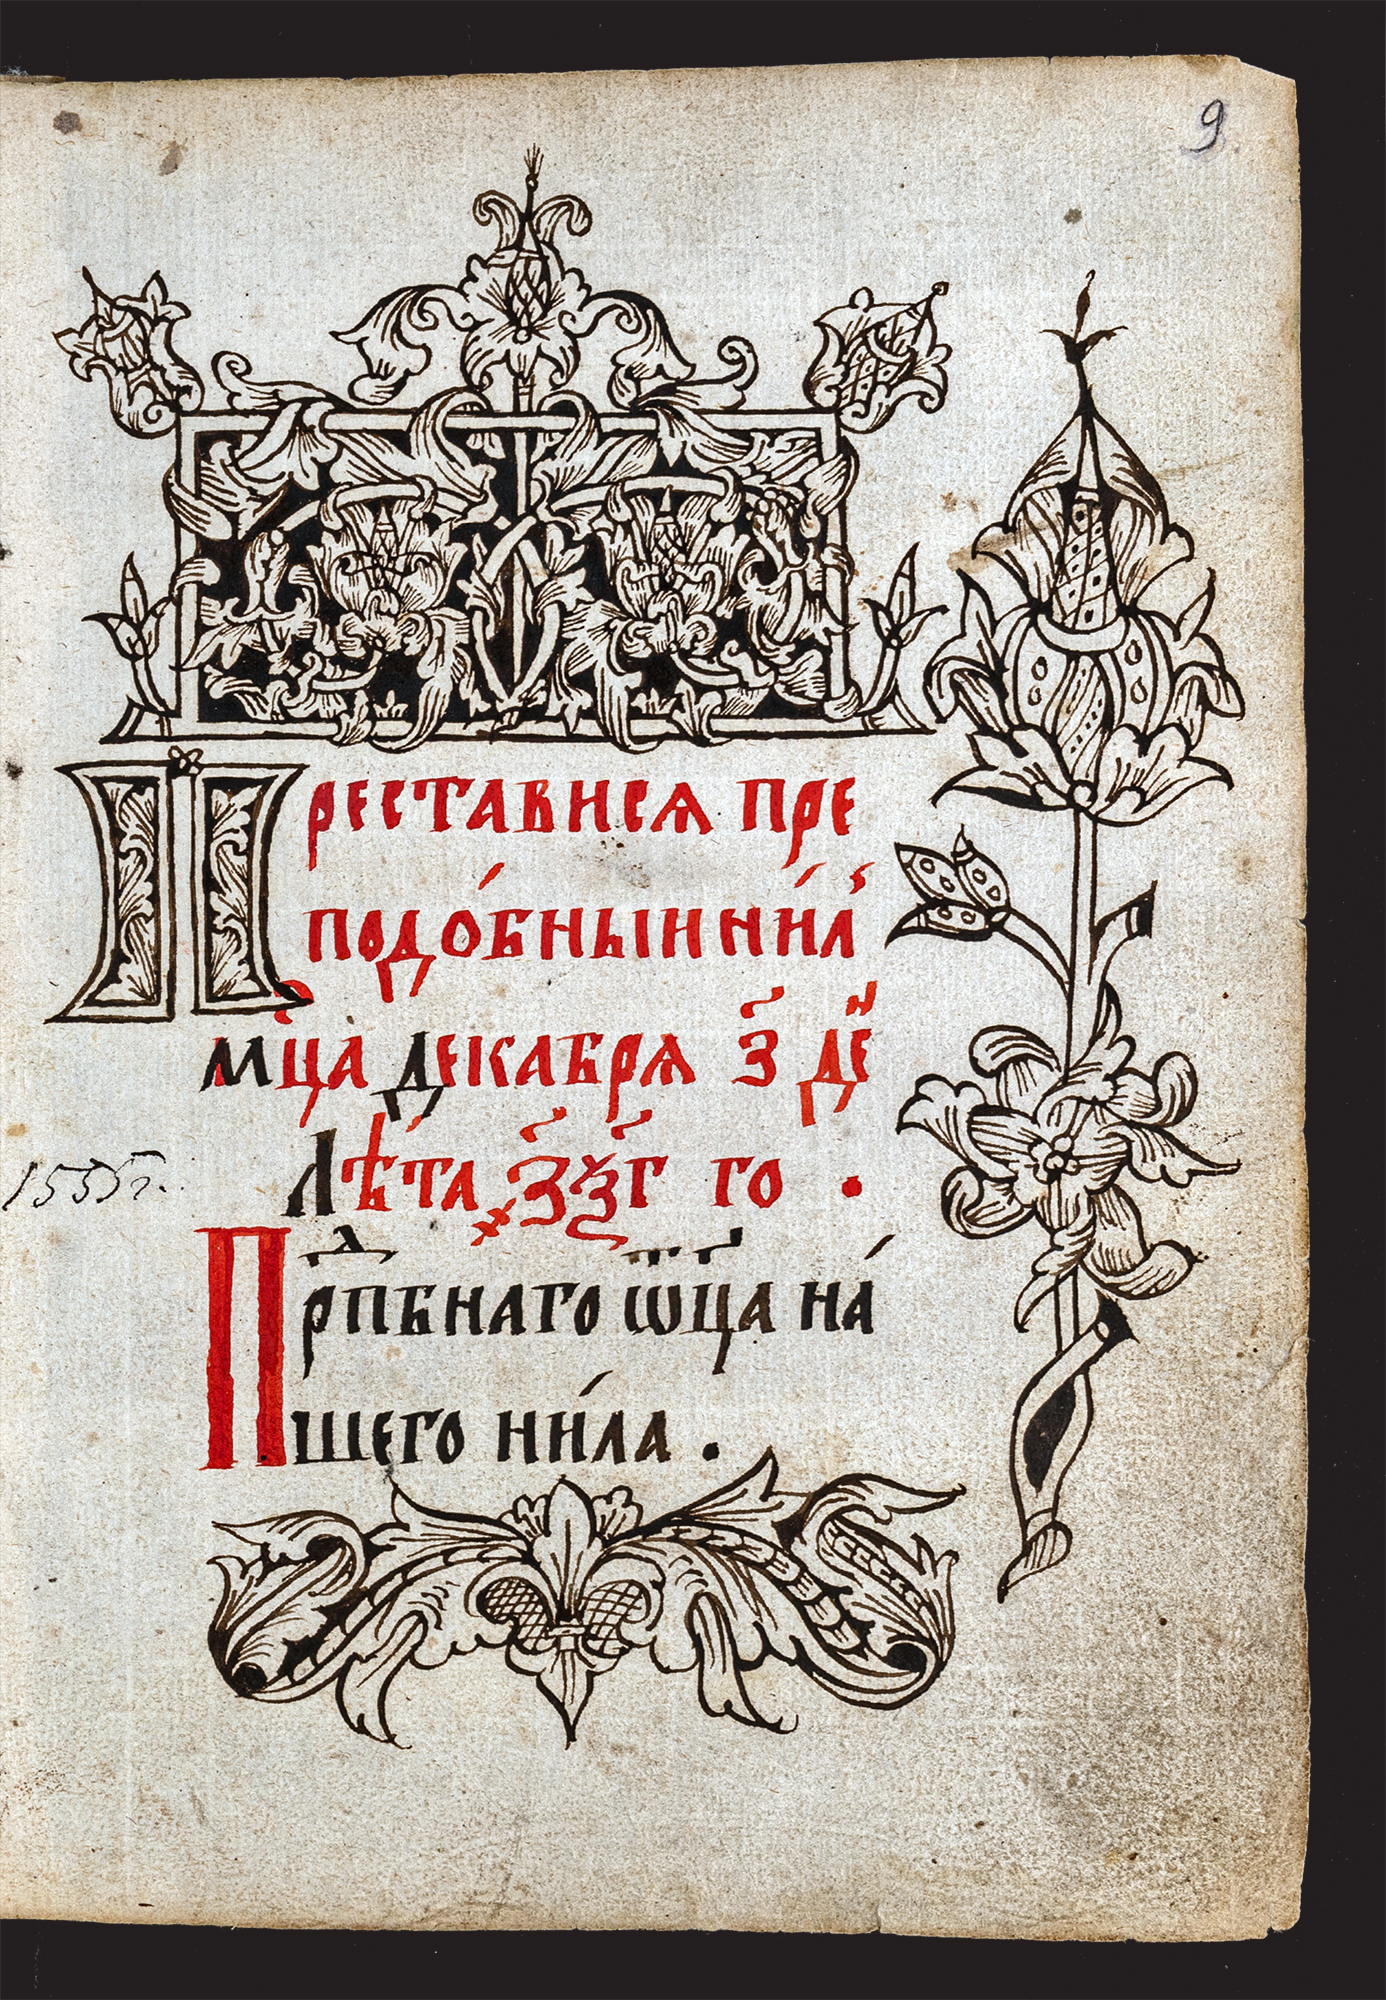 9
Преставися пре
подо́бныи ни́лъ
мц҃а декабря з҃ дн҃е
лѣ́та ҂з҃ѯ҃г го .
1555 г.
Прпⷣбнаго ѿц҃а на́
шего ни́ла .